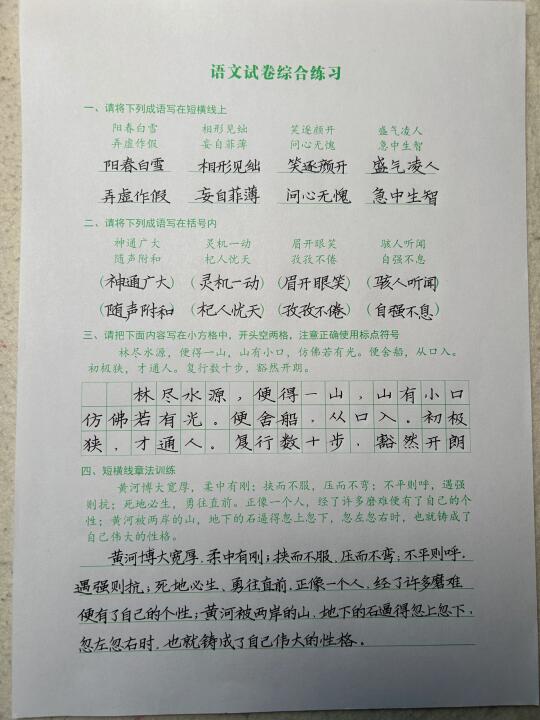 语文试卷综合练习
一、请将下列成语写在短横线上
阳春白雪 相形见绌 笑逐颜开 盛气凌人
弄虚作假 妄自菲薄 问心无愧 急中生智
阳春白雪 相形见绌 笑逐颜开 盛气凌人
弄虚作假 妄自菲薄 问心无愧 急中生智
二、请将下列成语写在括号内
神通广大 灵机一动 眉开眼笑 骇人听闻
随声附和 杞人忧天 孜孜不倦 自强不息
(神通广大) (灵机一动) (眉开眼笑) (骇人听闻)
(随声附和) (杞人忧天) (孜孜不倦) (自强不息)
三、请把下面内容写在小方格中，开头空两格，注意正确使用标点符号
林尽水源，便得一山，山有小口，仿佛若有光。便舍船，从口入。
初极狭，才通人。复行数十步，豁然开朗。
林尽水源，便得一山，山有小口
仿佛若有光。便舍船，从口入。初极
狭，才通人。复行数十步，豁然开朗
四、短横线章法训练
黄河博大宽厚，柔中有刚；挟而不服，压而不弯；不平则呼，遇强
则抗；死地必生，勇往直前。正像一个人，经了许多磨难便有了自己的个
性；黄河被两岸的山，地下的石逼得忽上忽下，忽左忽右时，也就铸成了
自己伟大的性格。
黄河博大宽厚，柔中有刚；挟而不服，压而不弯；不平则呼，
遇强则抗；死地必生、勇往直前，正像一个人，经了许多磨难
便有了自己的个性；黄河被两岸的山，地下的石逼得忽上忽下，
忽左忽右时，也就铸成了自己伟大的性格。